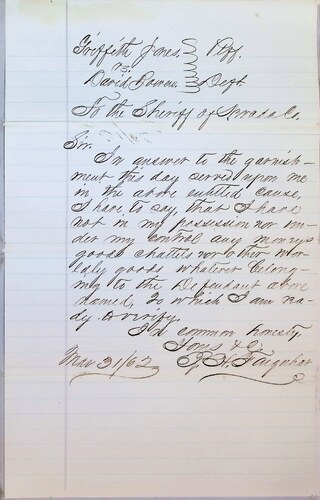 Griffith Jones. Plff.
vs.
David Bowen Deft.
To the Sheriff of Nevada Co.
Sir.
In answer to the garnish-
ment this day served upon me
in the above entitled cause,
I have to say, that I have
not in my possession nor un-
der my control any moneys
goods chattels nor other wor-
ldly goods whatever belong-
ing to the Defendant above
named, to which I am rea-
dy to verify.
In common honesty
Yours &c.
Mar 31/62 Farquhar